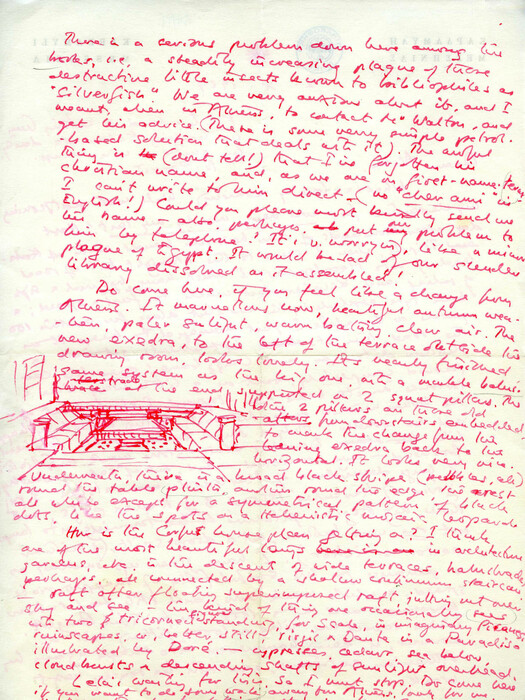 There is a serious problem down here among the
books, i.e. a steadily increasing plague of those
destructive little insects known to bibliophiles as
"Silverfish". We are very anxious about it, and I
want, when in Athens, to contact Mr Walton, and
get his advice. (There is some very simple petrol-
-based solution that deals with it). The awful
thing is (don't tell!) that I've forgotten his
Christian name, and, as we are on first-name terms
I can't write to him direct – (no "cher ami" in
English!) Could you please most kindly send me
his name – also, perhaps, put my problem to
him by telephone? It's v. worrying, like a minor
plague of Egypt. It would be sad if our slender
library dissolved as it assembled!
Do come here, if you feel like a change from
Athens. It's marvellous now, beautiful autumn wea-
-ther, paler sunlight, warm bathing, clear air. The
new exedra, to the left of the terrace outside the
drawing room, looks lovely. It's nearly finished
same system as the big one, with a marble balus-
trade at the end supported on 2 squat pillars. The
other 2 pillars are those old
from downstairs embedded
to mark the change from the
exedra back to the
horizontal. It looks very nice.
Underneath this is a broad black stripe (pebbles, etc)
round the table plinth and round the edge, the rest
all white except for a symmetrical pattern of black
dots, like the spots on a Hellenistic mosaic leopard.
How is the Corfu house plan getting on? I think
one of the most beautiful things in architecture,
gardens, etc. is the descent of wide terraces, balustrades
perhaps, all connected by a shallow continuous staircase
– raft after floating superimposed raft jutting out over
sky and sea – the kind of thing one occasionally sees
with two tricorned standing, for scale, in imaginary Piranesi
ruinscapes, or, better still, Virgil & Dante in a Paradiso
illustrated by Doré – cypresses, cedars, sea below
cloudbursts & descending shafts of sunlight overhead.
Lela's waiting for this, so I must stop. Do come here
if you want to